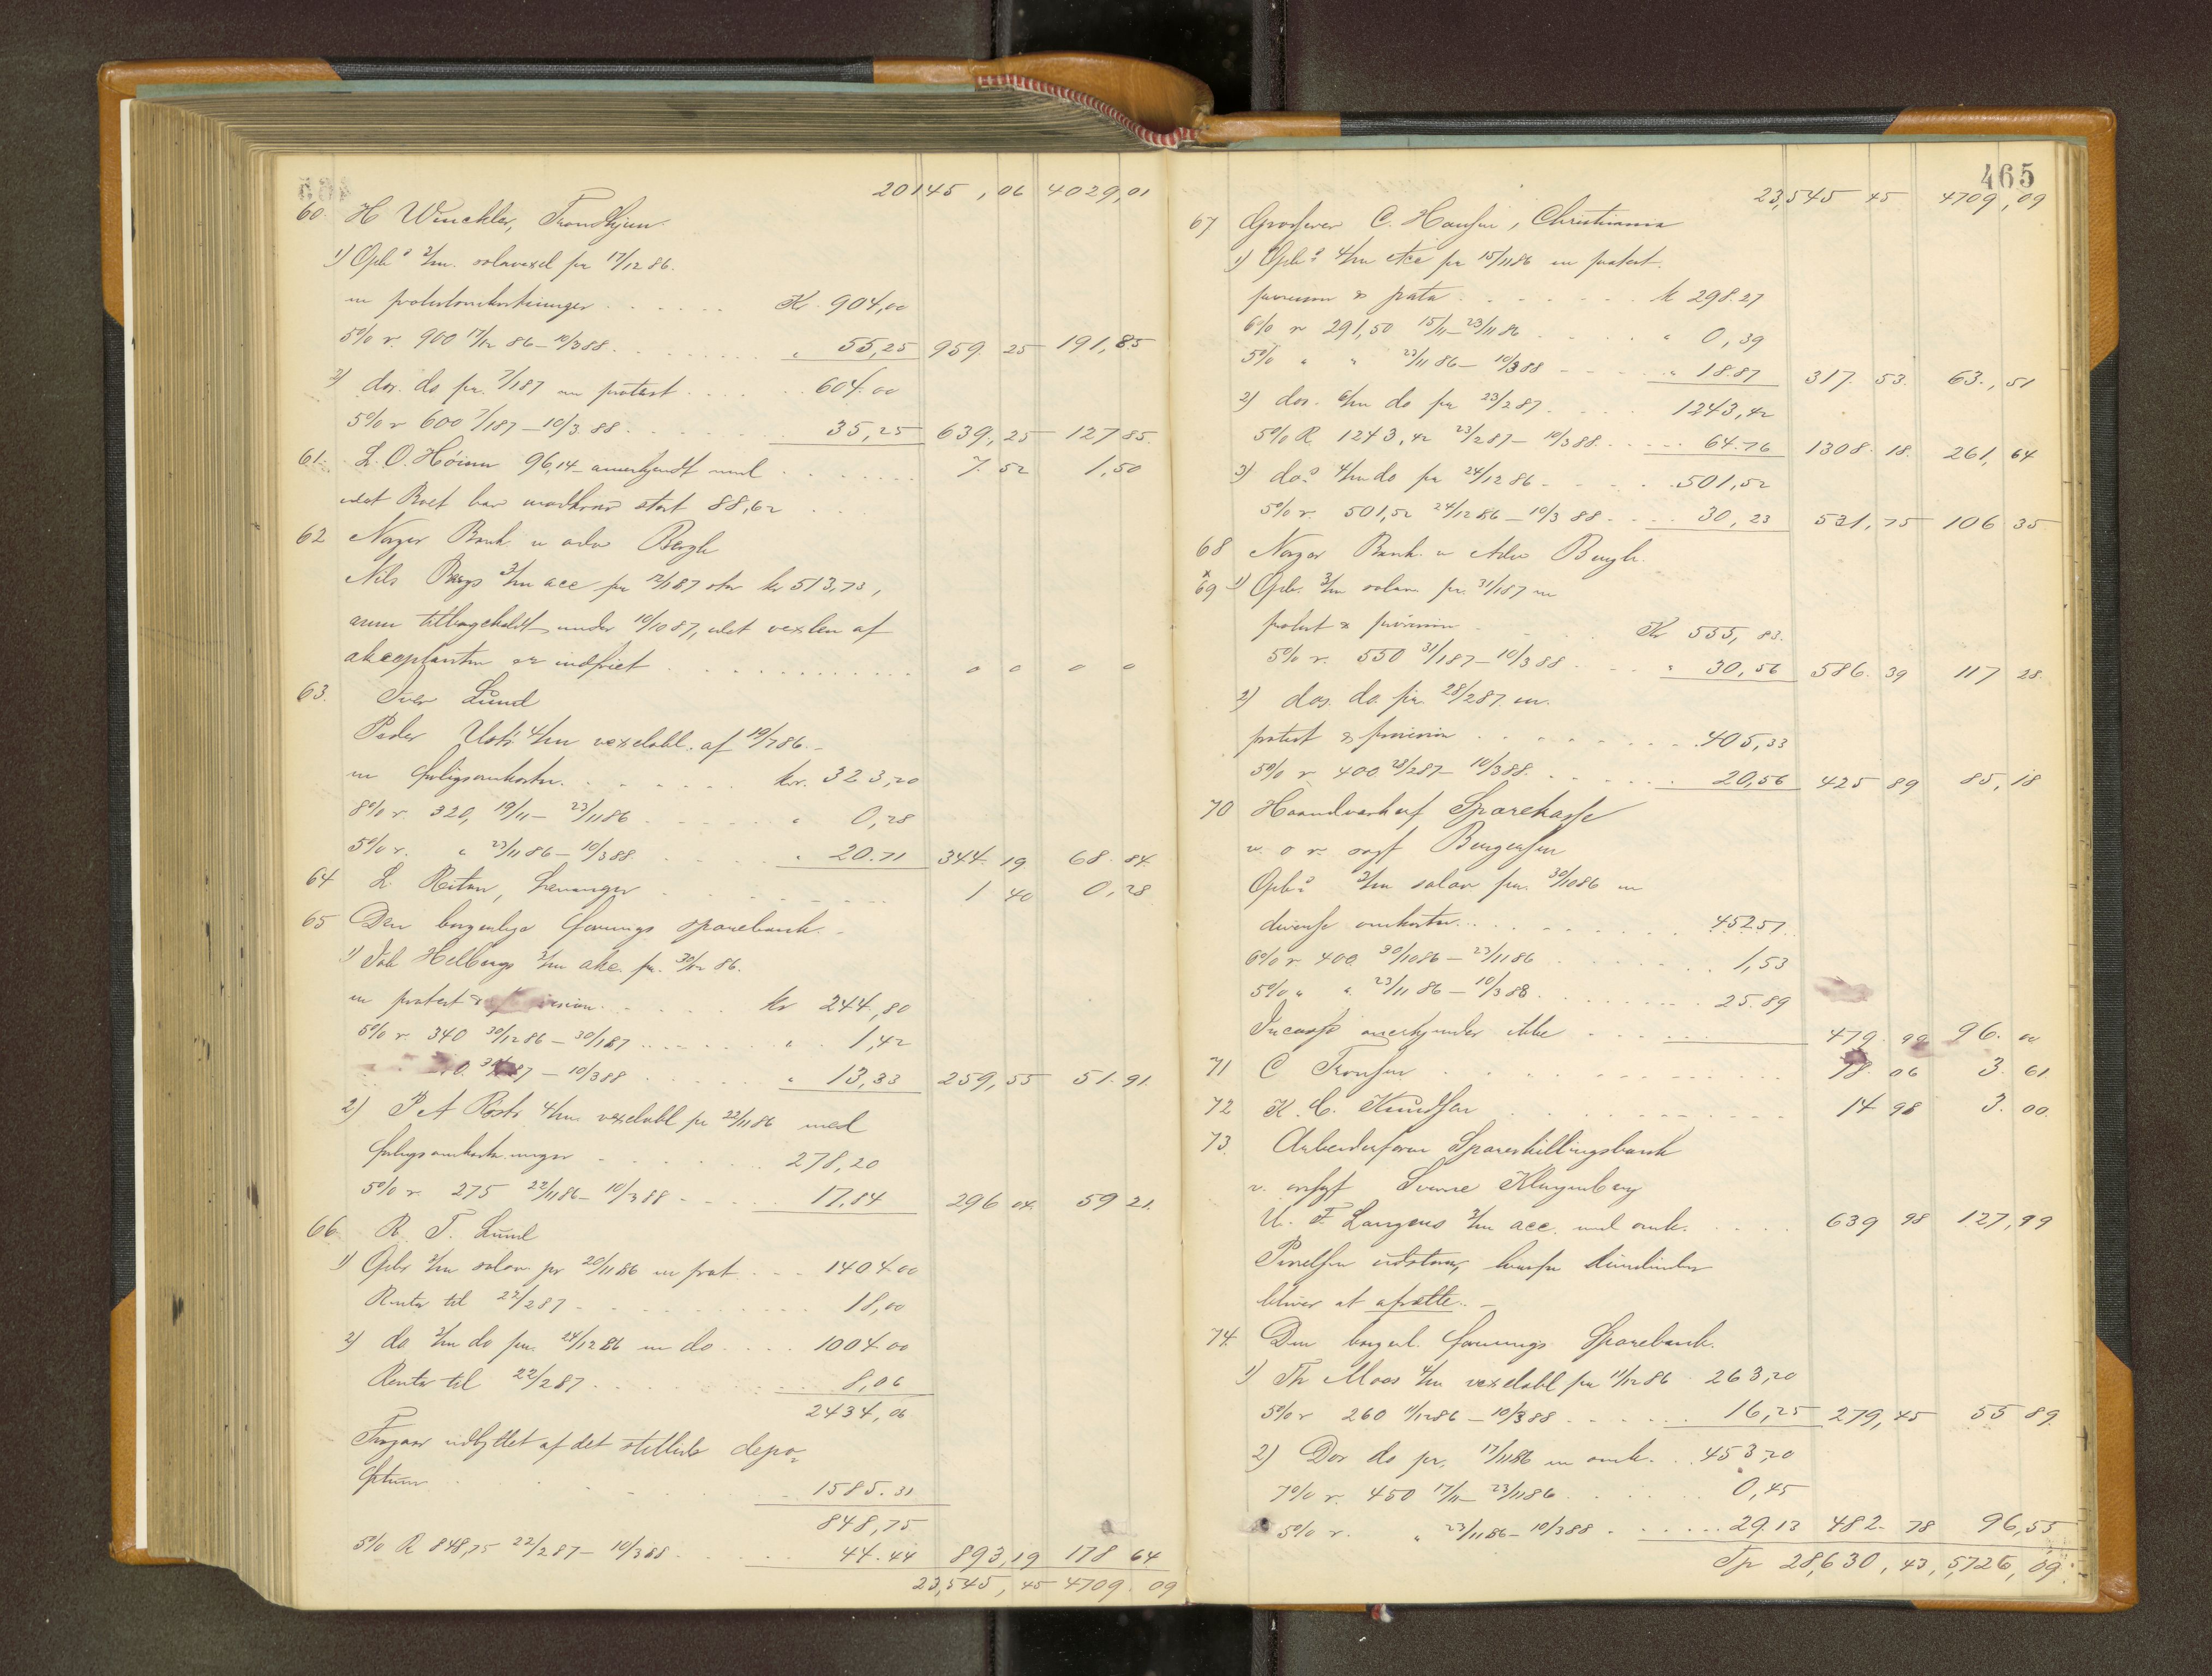 20145,06 4029,01
60. H Winckler, Trondhjem.
1) Opb⁵ 3/m. solavexel pr 17/12 86.
m protestomkostninger . . . . . . Kr. 904,00
5% r. 900 17/12 86 – 10/3 88 . . . . . . " 55,25 959 25 191,85
2) dos. do pr. 7/1 87 m protest . . . . . 604.00
5% r 600 7/1 87 – 10/3 88 . . . . . 35,25 639,25 127 85.
61. L. O. Höium 96,14 anerkjendt med . . . . . 7. 52 1,50
idet Boet har modkrav stort 88,62 . . .
62 Norges Bank v adv Bergh
Nils Bergs 3/m acc pr 12/1 87 stor kr 513,73,
anm tilbagekaldt under 10/10 87, idet vexlen af
akceptanten er indfriet . . . . . . . . . . 0 0 0 0
63. Iver Lund
Peder 4/m vexelobl. af 19/7 86. –
m følgeomkostn. . . . . . . kr. 323,20
8% r. 320, 19/11 – 23/11 86 . . . . . " 0,28
5% r. " 23/11 86 – 10/3 88. . . . . . " 20.71 344. 19. 68. 84.
64 L. Reitan, Levanger . . . . . . . . 1 40 0,28
65 Den borgerlige forenings sparebank. –
1) Joh Helbergs 3/m akc. pr. 30/12 86.
m protest & provision . . . . . kr 244,80
6% r. 340 30/12 86 – 30/1 87 . . . . . . " 1,42
87 – 10/3 88 . . . . . . " 13,33 259,55 51. 91.
2) P A 4/m. vexelobl pr 22/11 86 med
følgeomkostninger . . . . . . . 278,20
5% r. 275 22/11 86 – 10/3 88 . . . . . 17,84 296 04. 59 21.
66. R. T. Lund
1) Opb⁵ 3/m solav pr 20/11 86 m prot . . . 1404.00
Renter til 22/2 87 . . . . . . . . . . . 18,00
2) do 3/m do pr. 24/12 86 m do . . . . 1004.00
Renter til 22/2 87 . . . . . . . . . . 8,06
2434,06.
Fragaar udbyttet af det stillede depo-
situm . . . . . . . . . 1585.31
848,75
5% R 848,75 22/2 87 – 10/3 88 . . . . . 44.44 893,19 178 64
23,545,45 4709. 09
465
23,545 45 4709,09
67 Grosserer C. Hansen, Christiania
1) Opb⁵ 4/m acc pr 15/11 86 m protest.
provision & porto . . . . . . . . k 298.27
6% r 291,50 15/11 – 23/11 86 . . . . . " 0,39
5% " " 23/11 86 – 10/3 88 . . . . " 18.87 317. 53. 63., 51
2) dos. 6/m do pr 23/2 87. . . . . 1243,42
5% R. 1243,42 23/2 87 – 10/3 88 . . . . . 64.76 1308. 18. 261, 64
3) dos 4/m do pr 24/12 86 – . . . . 501,52
5% r. 501,52 24/12 86 – 10/3 88 . . . . 30,23 531,75 106 35.
68 Norges Bank v Adv Bergh.
x
69 1) Opb. 3/m solav. pr. 31/1 87 m
protest & provision . . . . Kr 555,83.
5% r. 550 31/1 87 – 10/3 88 . . . . " 30,56 586. 39 117 28.
2) dos. do. pr. 28/2 87. m.
protest & provision . . . . . . . . 405,33
5% r. 400. 28/2 87 – 10/3 88. . . . . . 20,56 425 89 85,18
70 Haandverkernes Sparekasse
v. o. r. sagf Bergersen
Opb⁵ 3/m solav pr. 30/10 86 m
diverse omkostn. . . . . . . . . . . 452.57
6% r. 400 30/10 86 – 23/11 86 . . . . . . . 1,53
5% " " 23/11 86 – 10/3 88 . . . . . . . . 25.89
Incasso anerkjendes ikke . . . . . . . . 479. 99 96. 00
71 C Tronsen . . . . . . . . . . . . . 18. 06 3. 61.
72 K. C. Knudsen . . . . . . . . . . . 14 98 3. 00.
73. Arbeiderforen Spareskillingsbank
v. ovrsgf Sverre Klingenberg
U. F. Langens 3/m acc. med omk. . . . . 639 98 127,99
bliver at afsætte. –
74. Den borgerl. forenings Sparebank.
1) Th Moes 4/m vexelobl pr 11/12 86 . 263,20
5% r 260 11/12 86 – 10/3 88 . . . . . . 16,25 279,45 55 89.
2) Dos do pr. 17/11 86 m omk. . . 453,20
7% r. 450 17/11 – 23/11 86 . . . . . . . 0,45
5% r. " 23/11 86 – 10/3 88 . . . . . . 29.13 482. 78 96,55
Tp 28,630,43, 5,726,09.